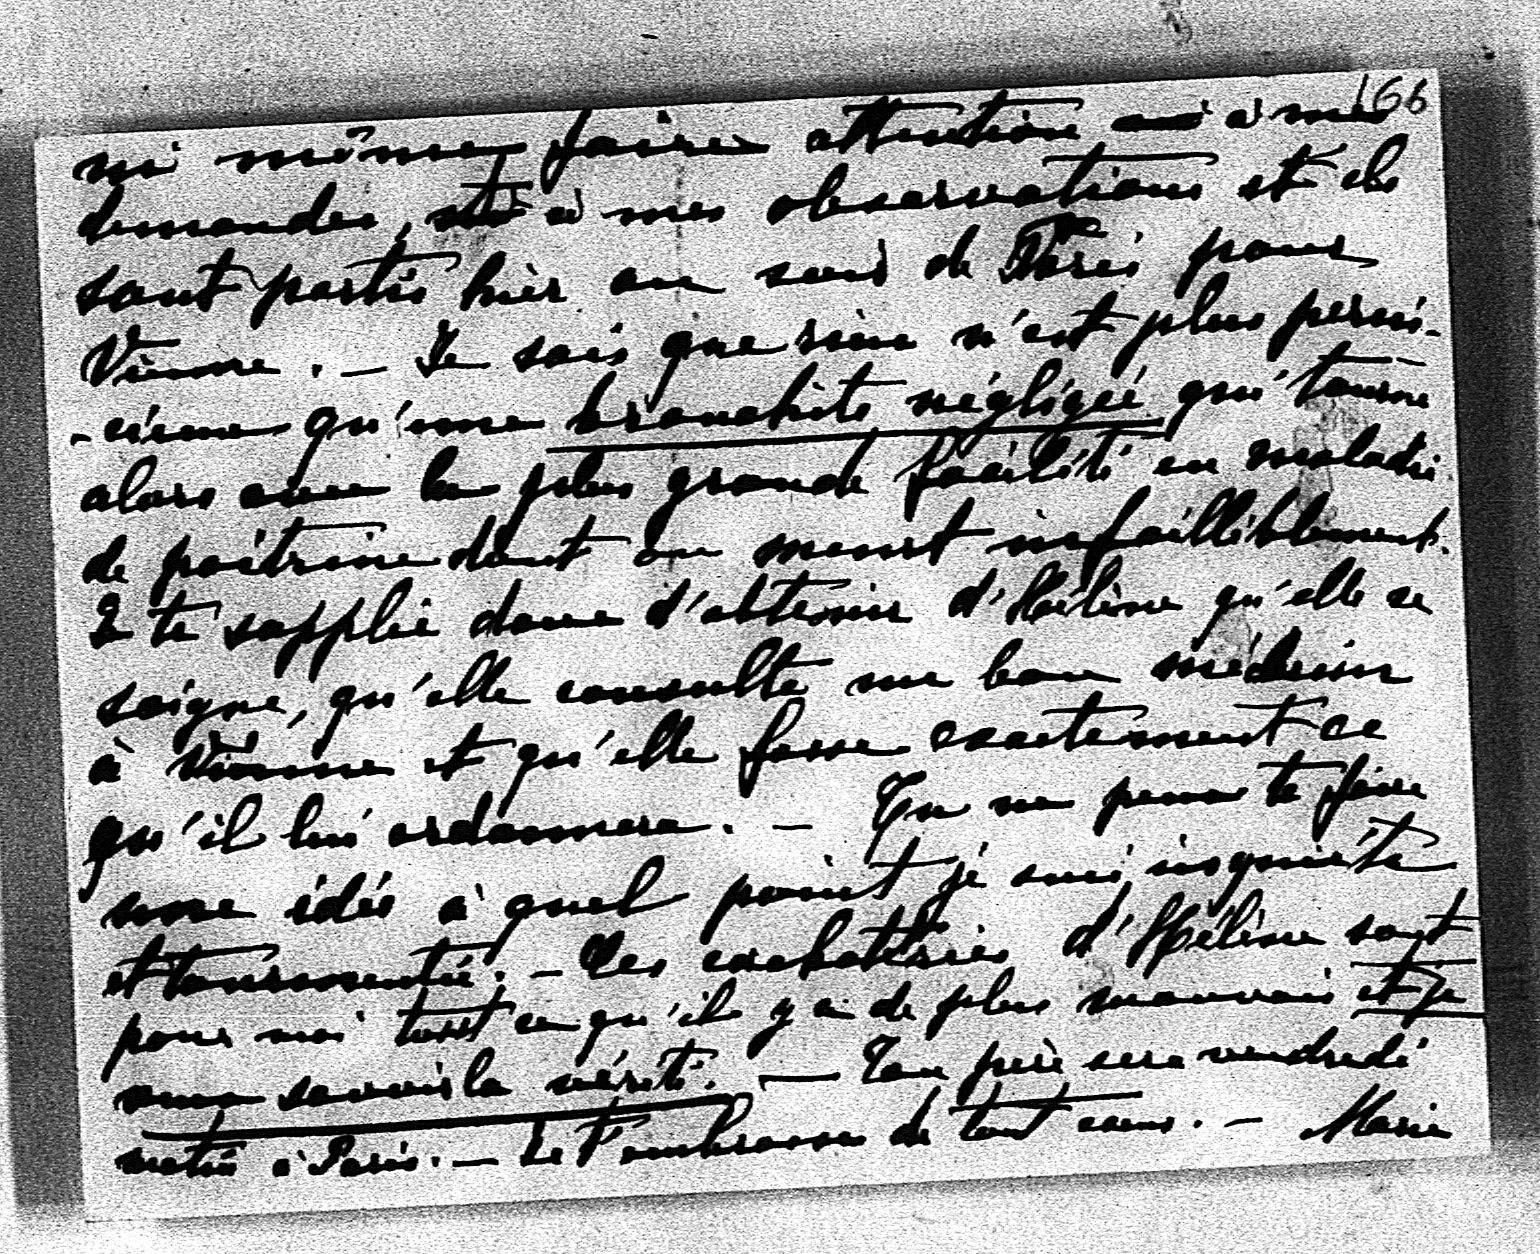 166
ni même faire attention ni à mes
demandes, ni à mes observations et ils
sont partis hier au soir de Paris pour
Vienne. — Je sais que rien n'est plus perni-
-cieux qu'une bronchite négligée qui tourne
alors avec la plus grande facilité en maladie
de poitrine dont on meurt infailliblement.
Je te supplie donc d'obtenir d'Hélène qu'elle se
soigne, qu'elle consulte un bon médecin
à Vienne et qu'elle fasse exactement ce
qu'il lui ordonnera. — Tu ne peux te faire
une idée à quel point je suis inquiète
et tourmentée. — Les cachotteries d'Hélène sont
pour moi tout ce qu'il y a de plus mauvais et je
veux savoir la vérité. — Ton père sera vendredi
matin à Paris. — Je t'embrasse de tout cœur. — Marie